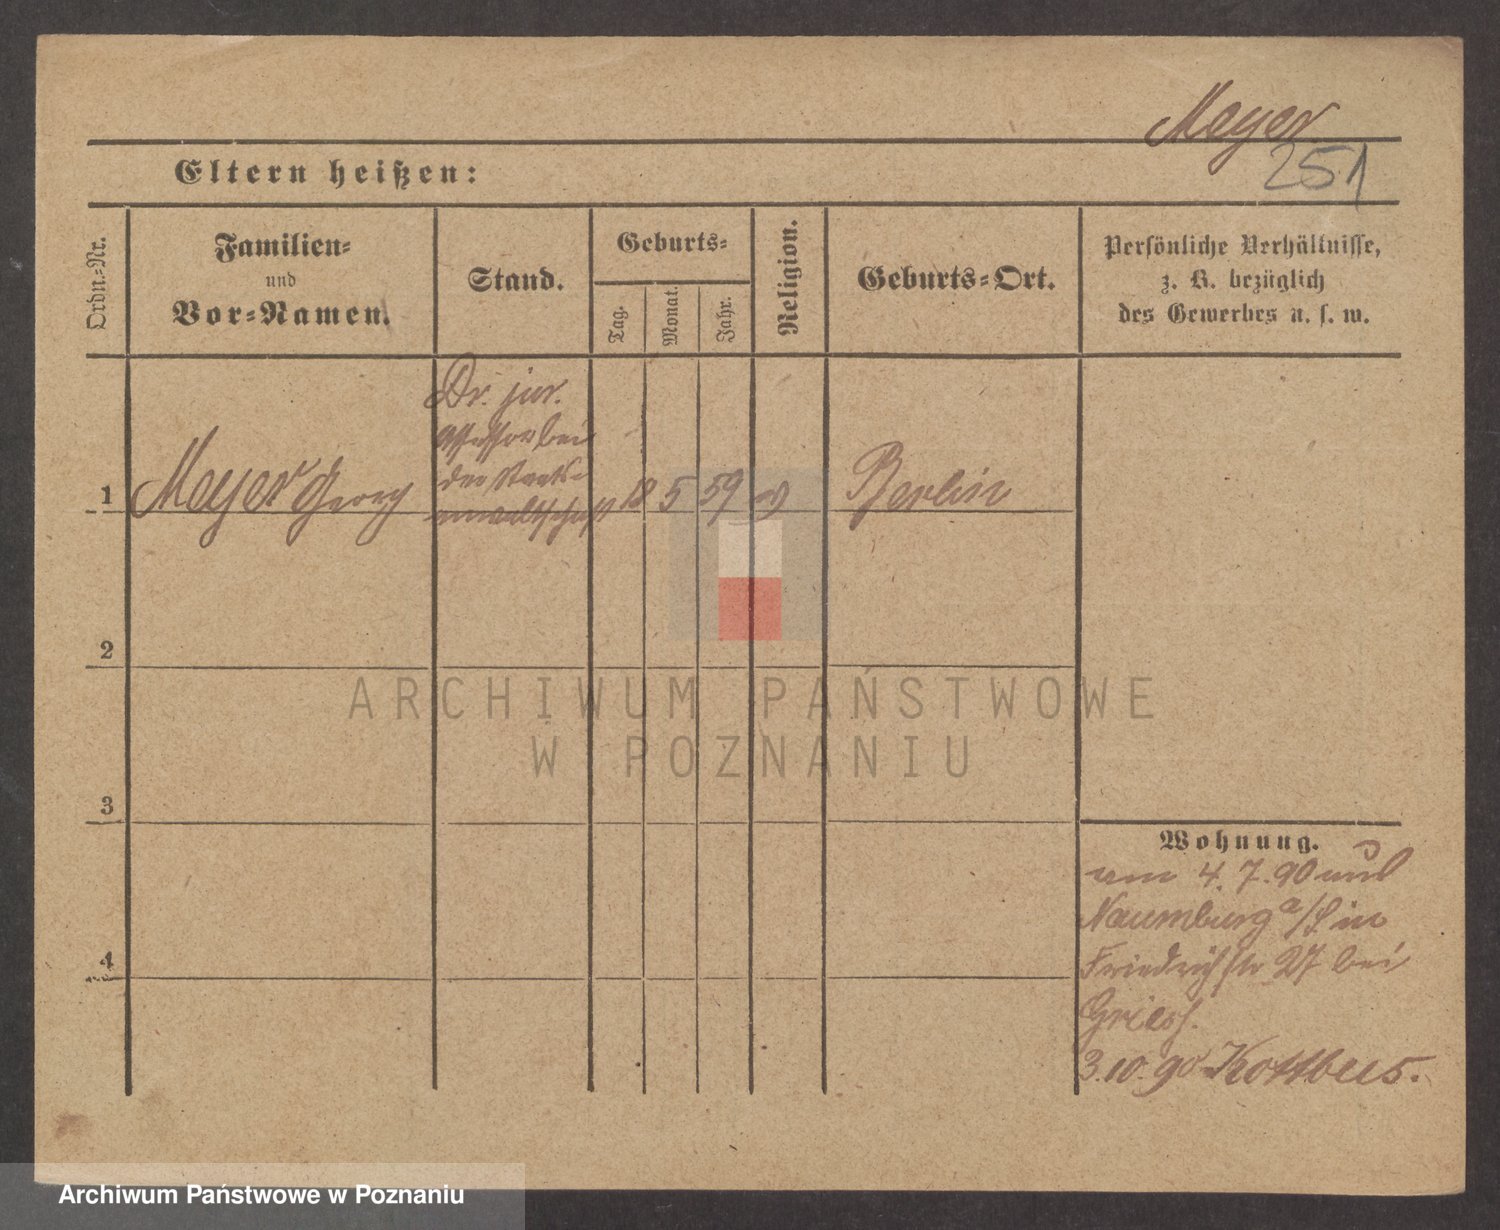 Meyer
251
Eltern heißen:
Ordn.-Nr.
Familien-
und
Vor-Namen.
Stand.
Geburts-
Tag.
Monat.
Jahr.
Religion.
Geburts-Ort.
Persönliche Verhältnisse,
z. B. bezüglich
des Gewerbes u. s. w.
Dr. jur.
Assessor bei
der Staats-
anwaltschaft
1 Meyer Georg 18 5 59 Berlin
2
3
4
Wohnung.
am 4.7.90 aus
Naumburg a/S in
Friedrichstr 27 bei
3.10.90 Kottbus.
ARCHIWUM PAŃSTWOWE
W POZNANIU
Archiwum Państwowe w Poznaniu